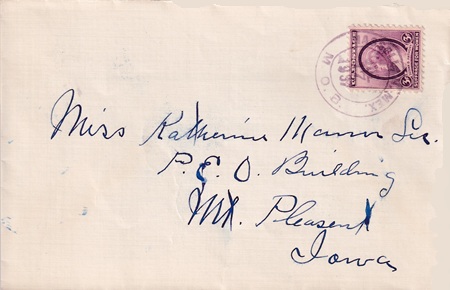 MEX.
Miss Katherine Sec.
P. E. O. Building
Mt. Pleasent
Iowa